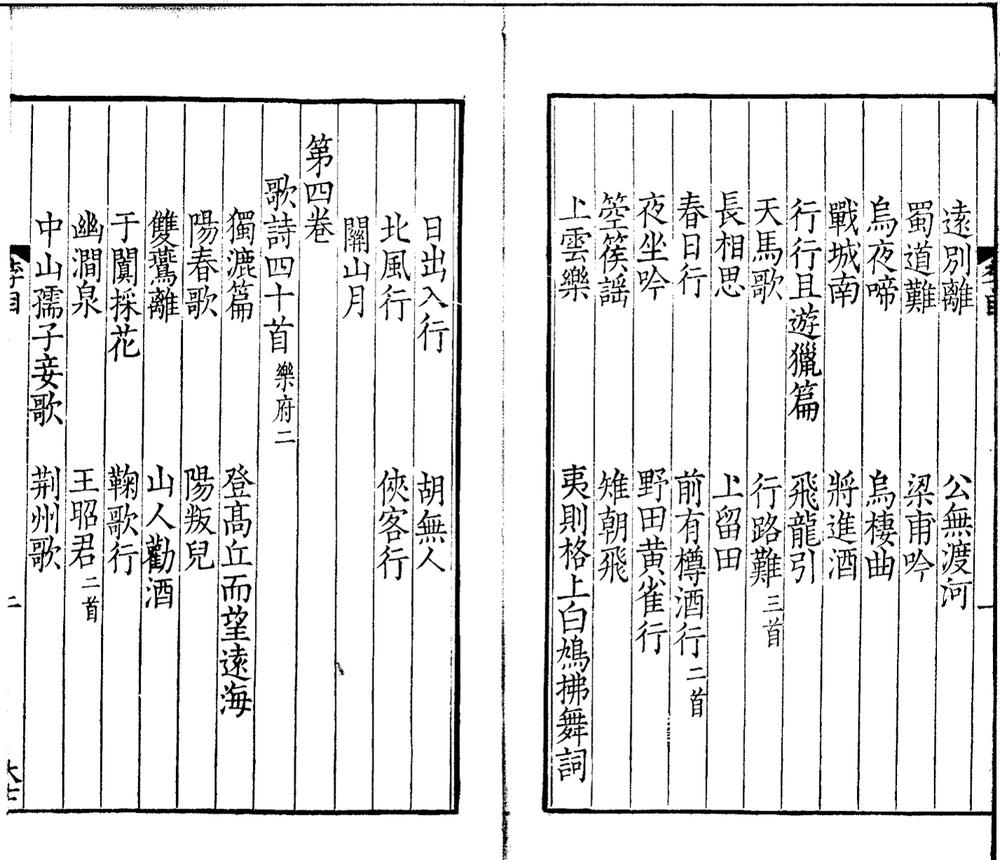 遠別離　公無渡河
蜀道難　梁甫吟
烏夜啼　烏棲曲
戰城南　將進酒
行行且遊獵篇　飛龍引
天馬歌　行路難三首
長相思　上留田
春日行　前有樽酒行二首
夜坐吟　野田黃雀行
箜篌謠　雉朝飛
上雲樂　夷則格上白鳩拂舞詞
日出入行　胡無人
北風行　俠客行
關山月
第四卷
歌詩四十首樂府二
獨漉篇　登高丘而望遠海
陽春歌　陽叛兒
雙鷰離　山人勸酒
于闐採花　鞠歌行
幽澗泉　王昭君二首
中山孺子妾歌　荆州歌
李目
二